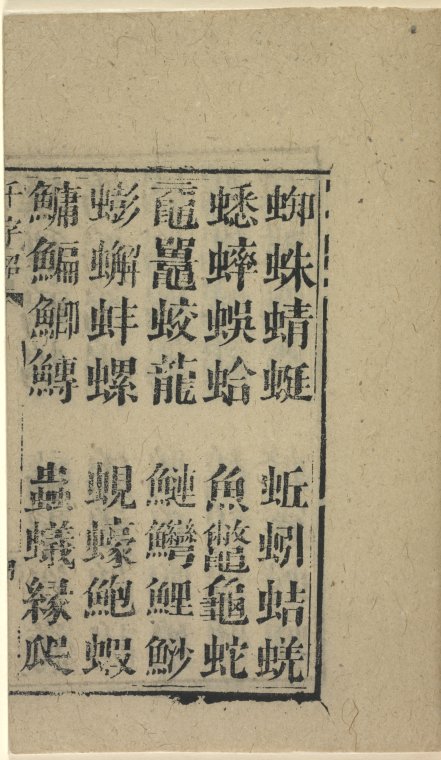 蜘蛛蜻蜓 蚯蚓蛣蜣
蟋蟀蜈蛤 魚鼈龜蛇
黿鼉蛟龍 鰱鱘鯉魦
蟛蠏蚌螺 蜆蠔鮑蝦
鱅鯿鯽鱄 蟲蟻緣爬